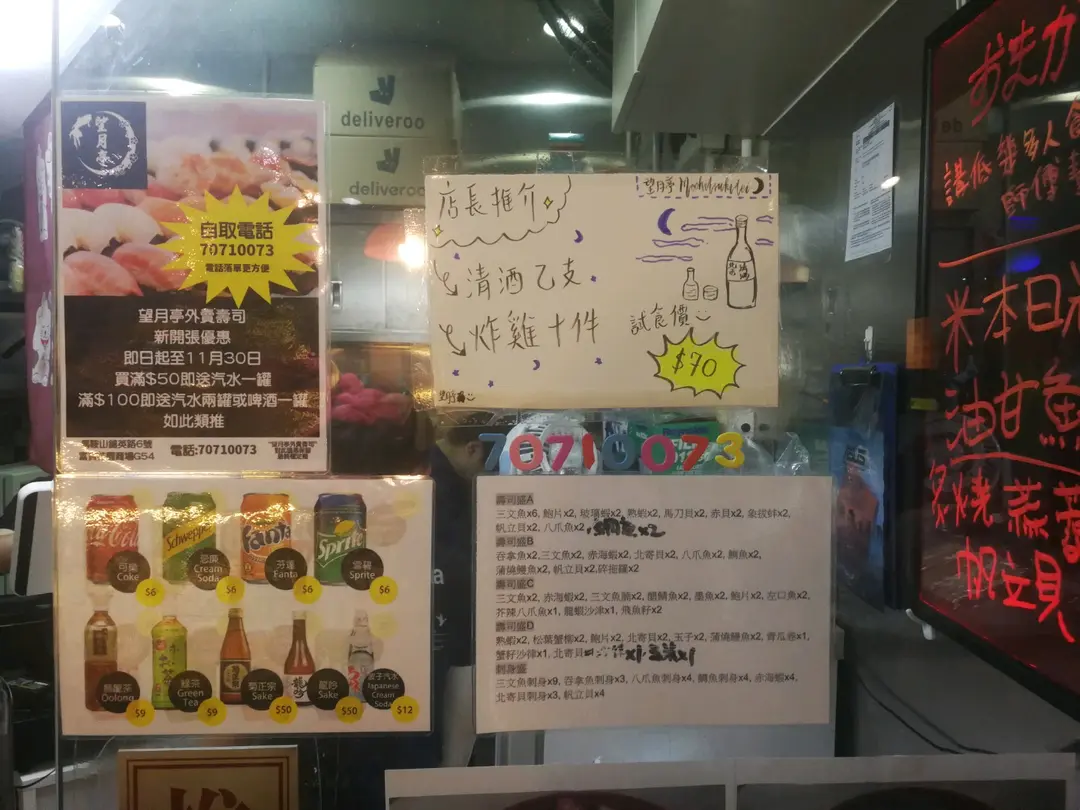 望月亭
自取電話
70710073
電話落單更方便
望月亭外賣壽司
新開張優惠
即日起至11月30日
買滿$50即送汽水一罐
滿$100即送汽水兩罐或啤酒一罐
如此類推
馬鞍山鞍英路6號
商場G54
電話:70710073
deliveroo
deliveroo
店長推介
望月亭
清酒乙支
炸雞十件
試食價
$70
70710073
Coca-Cola
Schweppes
Fanta
Sprite
可樂
Coke
$6
忌廉
Cream
Soda
$6
芬達
Fanta
$6
雪碧
Sprite
$6
烏龍茶
Oolong
$9
綠茶
Green
Tea
$9
菊正宗
Sake
$50
龍吟
Sake
$50
Japanese
Cream
Soda
$12
壽司盛A
三文魚x6, 鮑片x2, 玻璃蝦x2, 熟蝦x2, 馬刀貝x2, 赤貝x2, 象拔蚌x2,
帆立貝x2, 八爪魚x2, x2
壽司盛B
吞拿魚x2,三文魚x2, 赤海蝦x2, 北寄貝x2, 八爪魚x2, 鯛魚x2,
蒲燒鰻魚x2, 帆立貝x2,碎拖羅x2
壽司盛C
三文魚x2, 赤海蝦x2, 三文魚腩x2, 醋鯖魚x2, 墨魚x2, 鮑片x2, 左口魚x2,
芥辣八爪魚x1, 龍蝦沙律x1, 飛魚籽x2
壽司盛D
熟蝦x2, 松葉蟹柳x2, 鮑片x2, 北寄貝x2, 玉子x2, 蒲燒鰻魚x2, 青瓜卷x1,
蟹籽沙律x1, 北寄貝 x1 x1
刺身盛
三文魚刺身x9, 吞拿魚刺身x3, 八爪魚刺身x4, 鯛魚刺身x4, 赤海蝦x4,
北寄貝刺身x3, 帆立貝x4
お先力
幾多人食
講低
師傅
本日
甘魚
油
炙燒
帆立貝